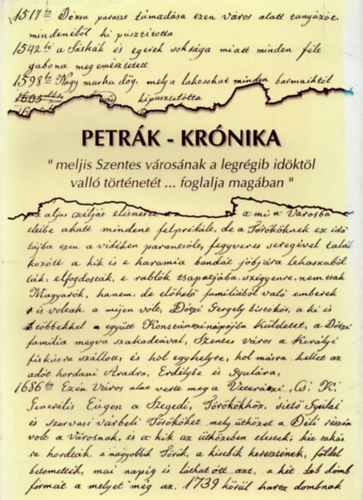 1517 Dózsa paraszt támadása ezen város alatt tanyázott
mindenéböl ki pusztitotta
1542 a Sáskák és egerek soksága miatt minden féle
gabona meg emésztetett
1598 Nagy marha dög, mely a lakosokat minden barmaiktól
1605 kipusztította
PETRÁK - KRÓNIKA
" meljis Szentes városának a legrégib idöktöl
valló történetét ... foglalja magában "
a mi a Városba
eleibe akadt mindent felprédált, de a Törököknek ez idő
tájba ezen a vidéken parantsoló, fegyveres seregivel talál
kozott a kik is e haramia bandát
ták, elfogdosták, e rablók tsapatjába nem csak
Magyarok, hanem de előkelő familiából való emberek
is voltak, a mijen volt, Dótzi Gergely a ki is
többekkel együtt küldetett, a Dótzi
familia magva szakadtával, Szentes város a Királyi
fiskusra szállott, és hol egyhelyre, hol másra kellet az
adót hordani Aradra, Erdélybe és Gyulára,
1686 Ezen Város alat verte meg a Veterani, Cs. K.
Generális a Szegedi, Törökökhöz, siető Gyulai
és szarvasi várbeli Törököket mely ütközet a Déli részin
volt a Városnak, és a kik az ütközetben elestek,
hordták a nagyobbik Török, a kisebbik keresztének, földel
betemették, mai napig is látható két domb
formát a melyet még az 1739 körül harcz dombnak